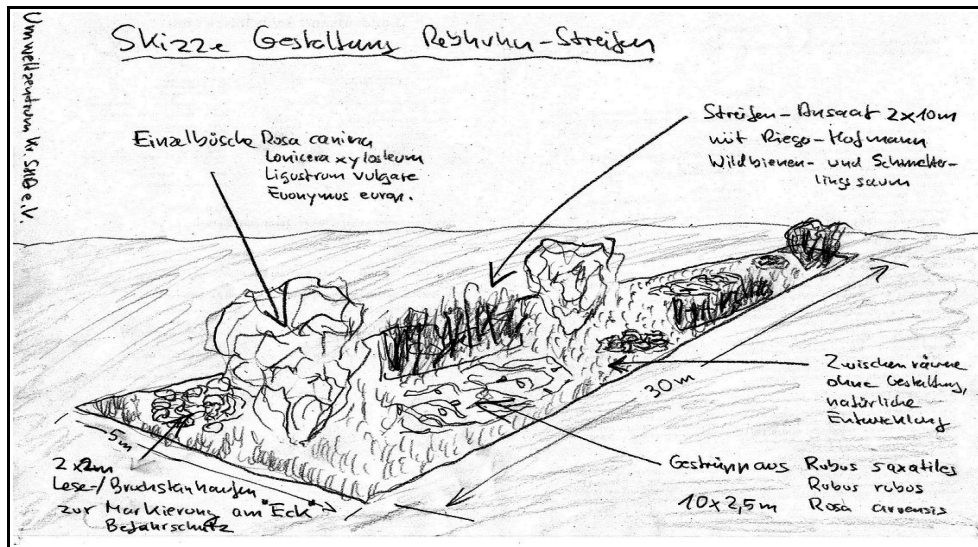 Skizze Gestaltung Rebhuhn-Streifen
Umweltzentrum Kr. SHA e.V.
Einzelbüsche Rosa canina
Lonicera xylosteum
Ligustrum vulgare
Euonymus europ.
Streifen-Ansaat 2x10m
mit Rieger-Hofmann
Wildbienen- und Schmetter-
lingssaum
Zwischenräume
ohne Gestaltung,
natürliche
Entwicklung
30m
5m
2x2m
Lese-/Bruchsteinhaufen
zur Markierung am "Eck"
Befahrschutz
Gestrüpp aus Rubus saxatiles
Rubus rubus
10x2,5m Rosa arvensis